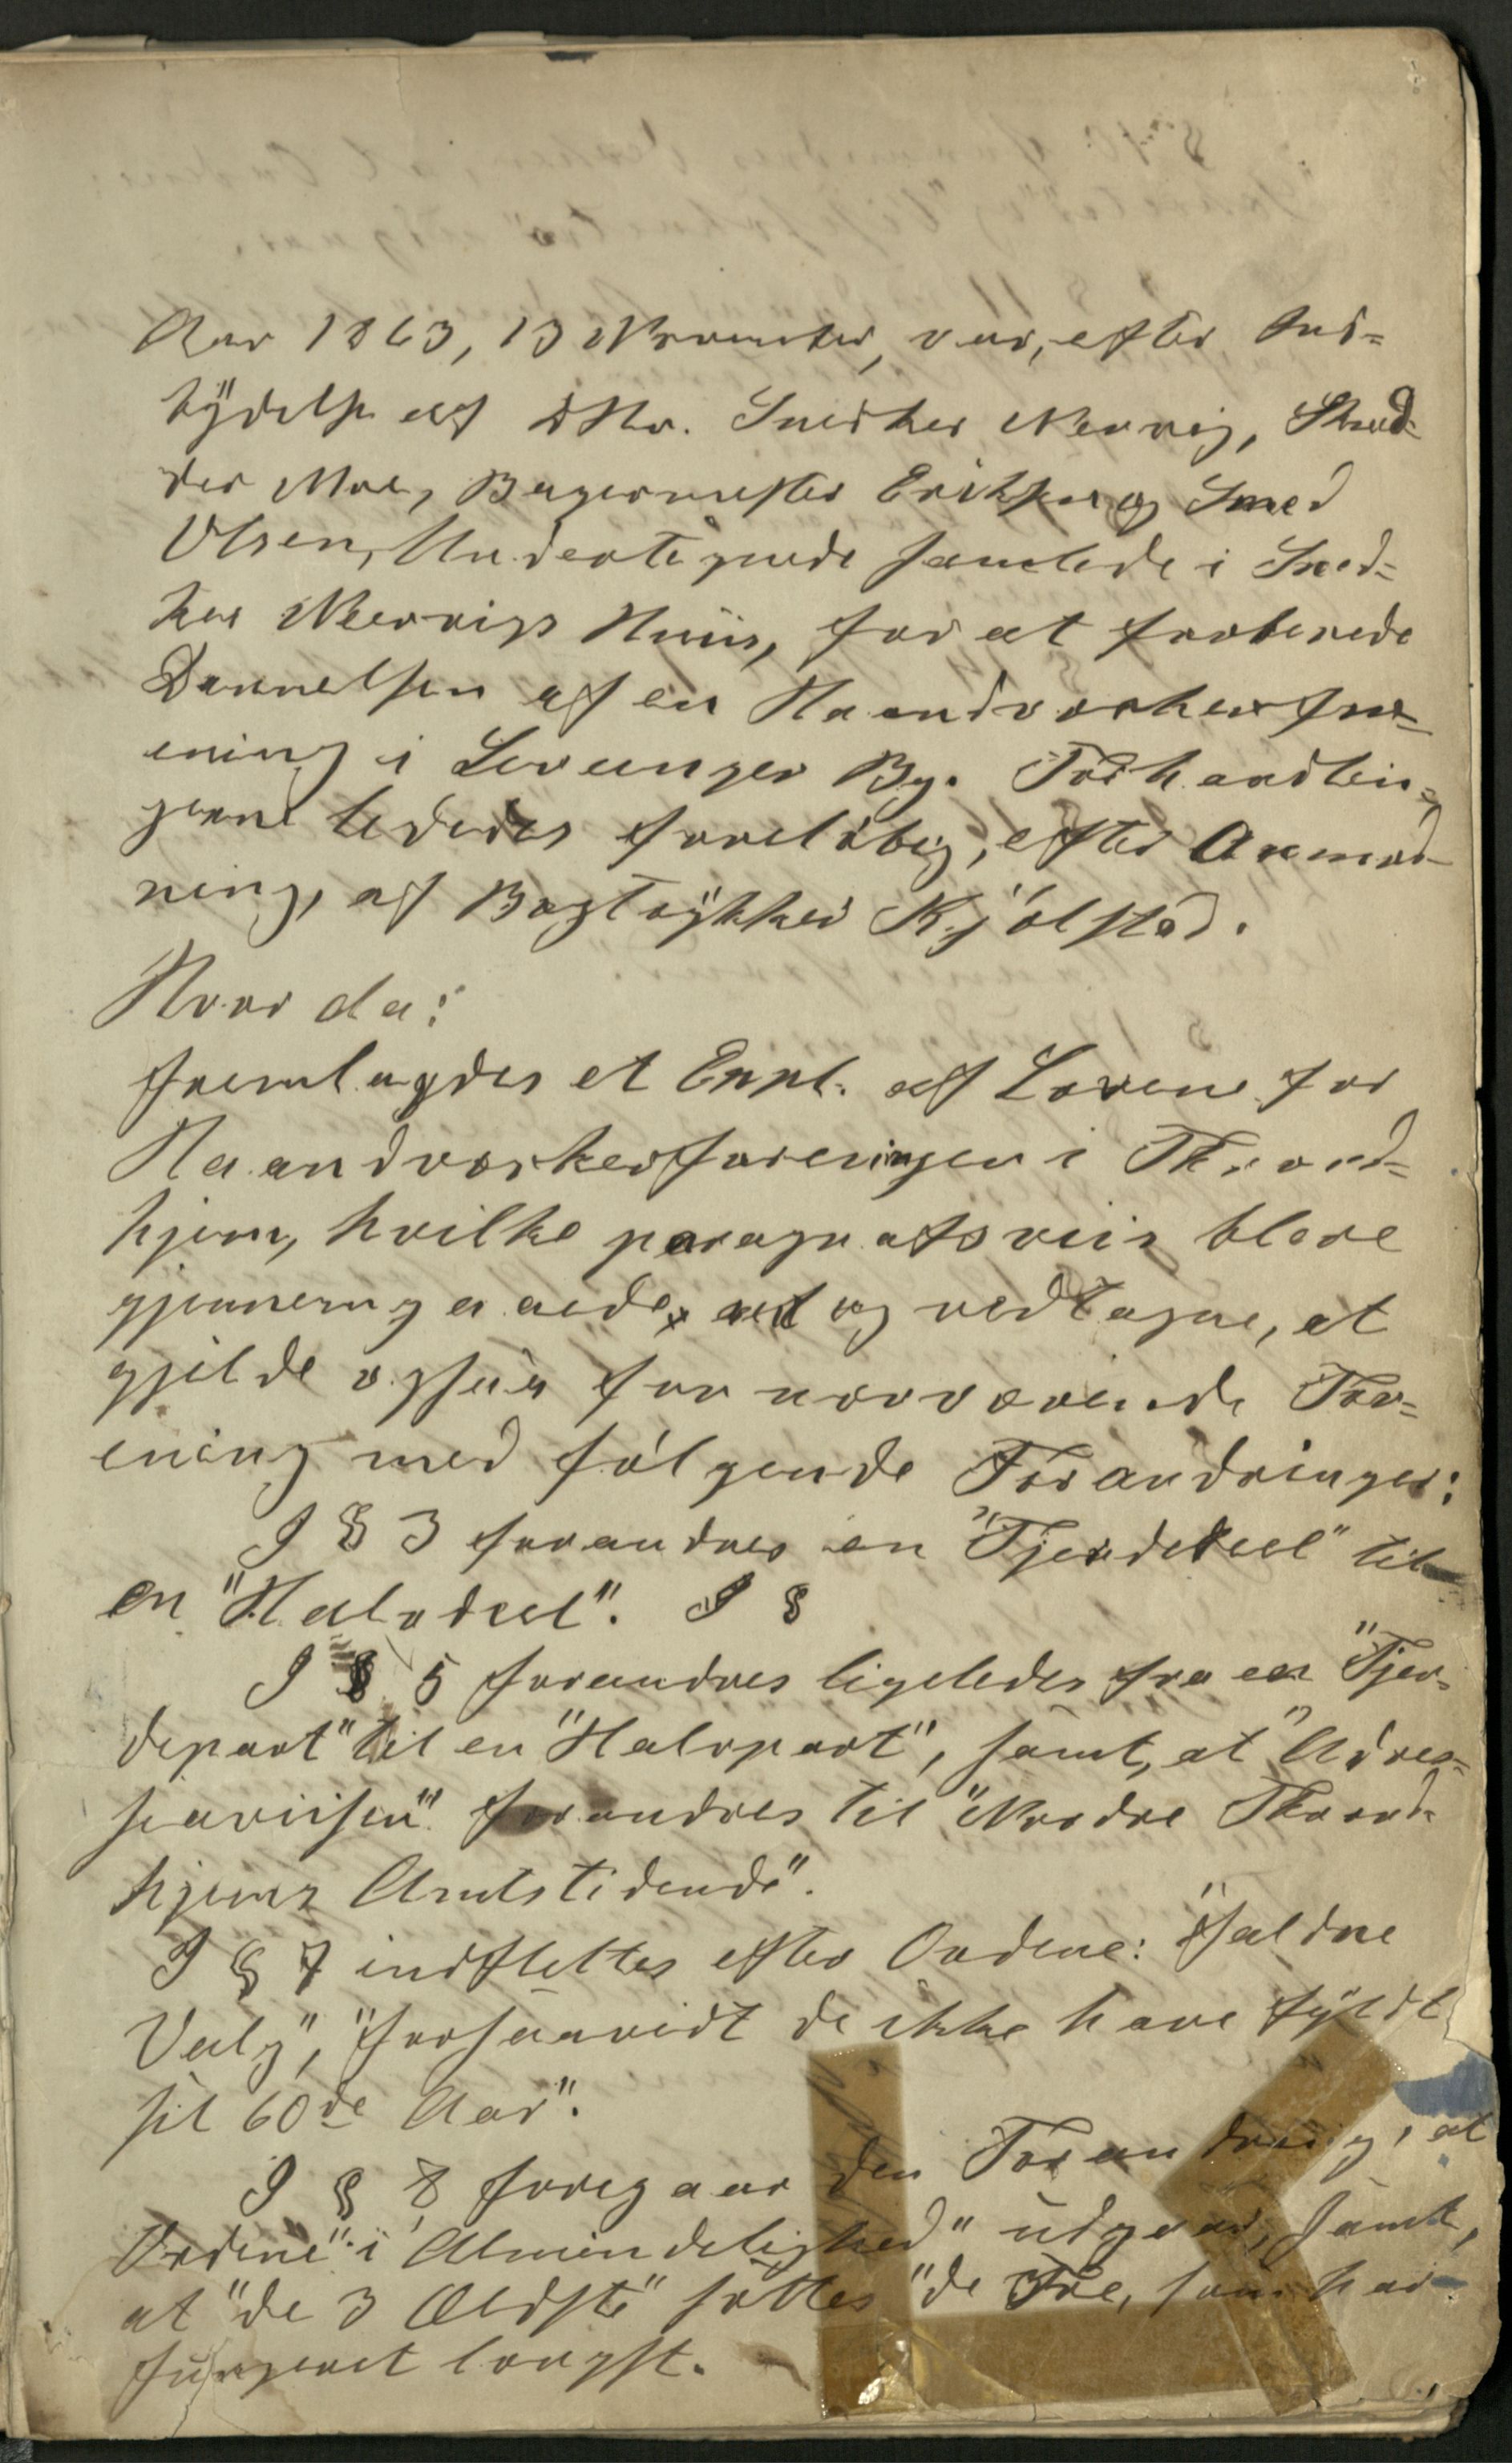 Aar 1863, 13 November, var, efter Ind-
bydelse af DHr. Snedker Nervig, Skræd-
der Moe, Bagermester Eriksen og Smed
Olsen, Undertegnede samlede i Sned-
ker Nervigs Huus, for at forberede
Dannelsen af en Haandværkerfor-
ening i Levanger By. Forhandlin-
gerne lededes foreløbig, efter Anmod-
ning, af Bogtrykker Kjølstad.
Hvor da:
fremlagdes et Expl. af Lovene for
Haandværkerforeningen i Thrond-
hjem, hvilke paragrafsviis bleve
gjennemgaaede og vedtagne, at
gjelde ogsaa for nærværende For-
ening med følgende Forandringer:
I § 3 forandres en "Fjerdedeel" til
en "Halvdeel". I §
I § 5 forandres ligeledes fra en "Fjer-
depart" til en "Halvpart", samt, at "Adres-
seavisen" forandres til "Nordre Thrond-
hjems Amtstidende".
I § 7 indflettes efter Ordene: "faldne
Valg", "forsaavidt de ikke have fyldt
sit 60de Aar".
I § 8 foregaar den Forandring, at
Ordene "i Almindelighed" udgaar, samt,
at "de 3 Ældste" sættes "de Tre, som har
fungeret længst.